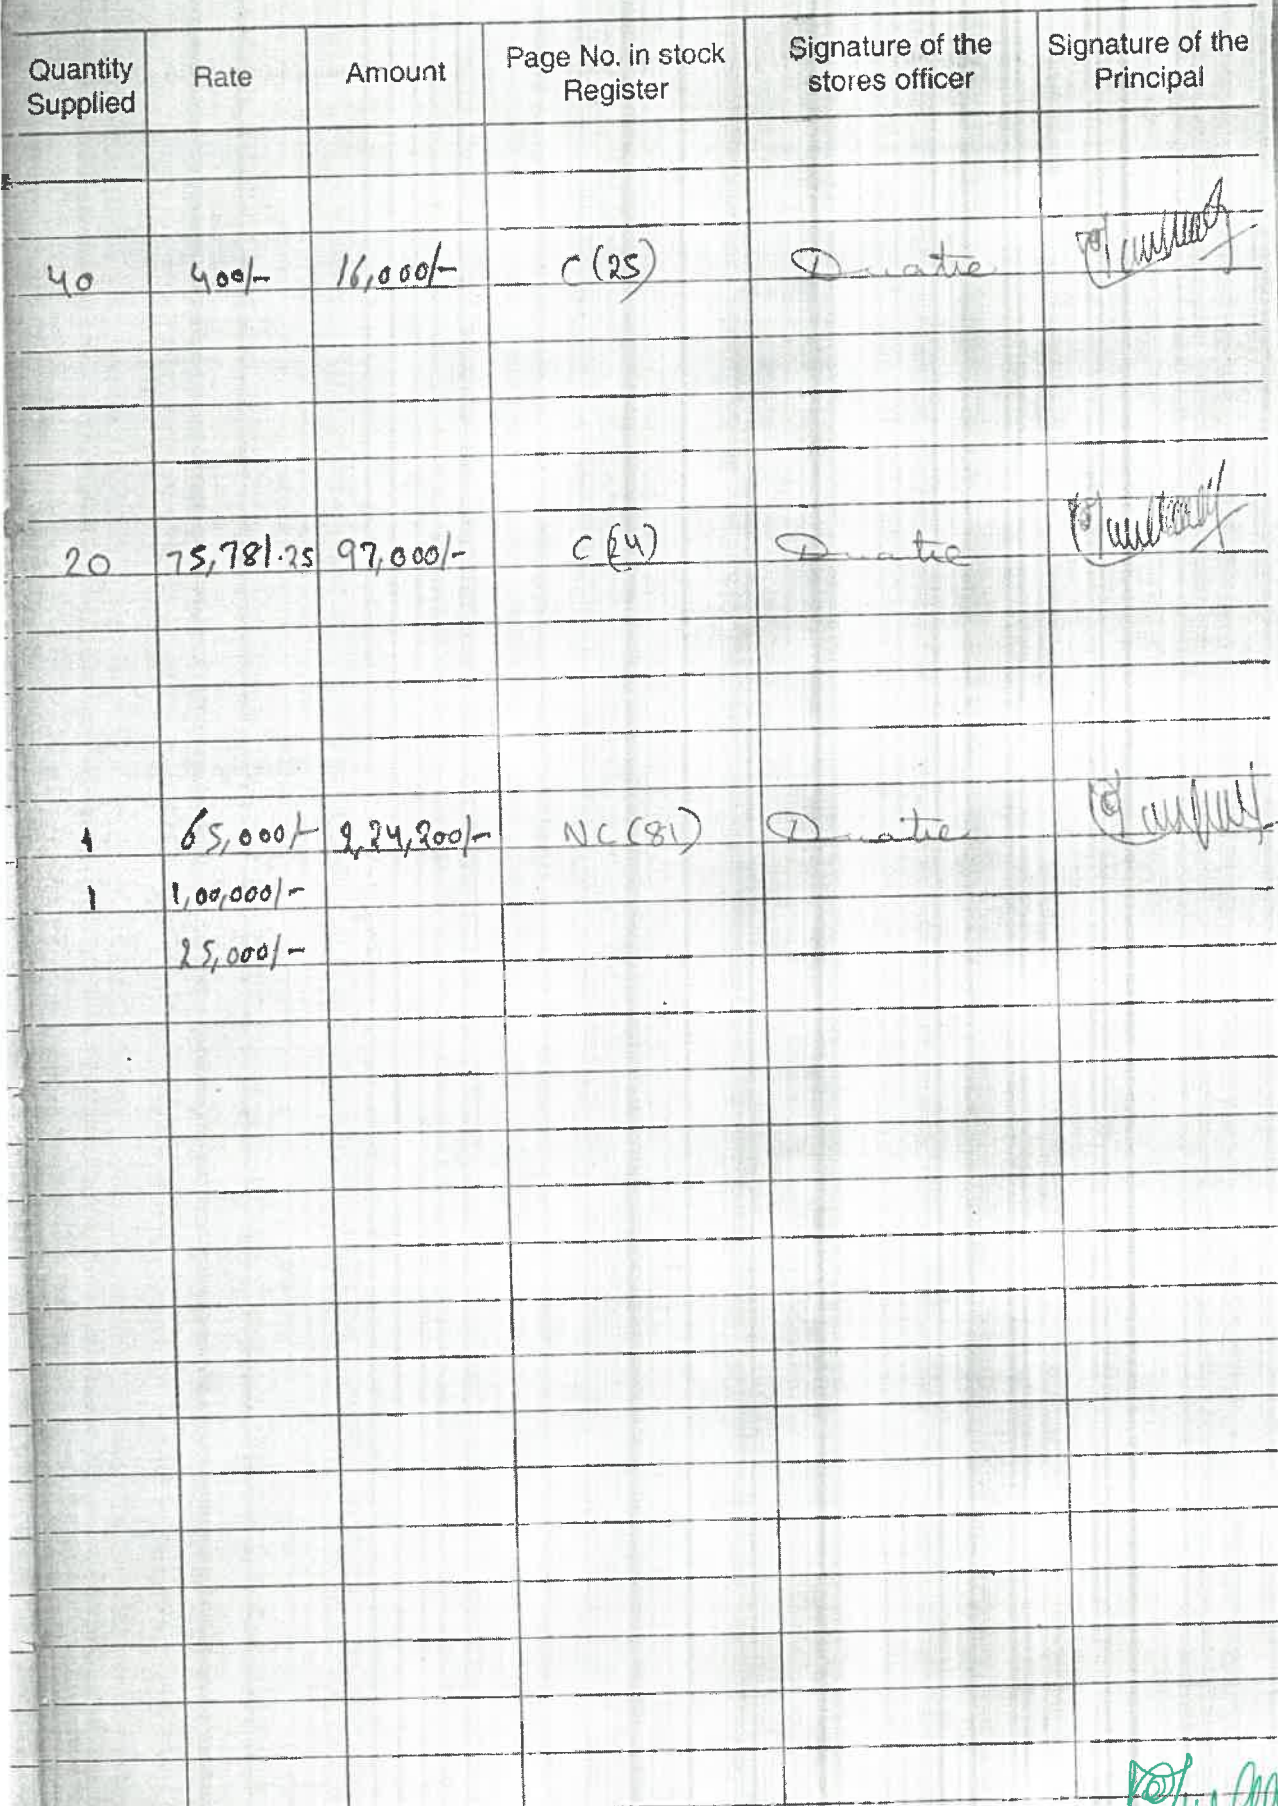 Quantity Supplied Rate Amount Page No. in stock Register Signature of the stores officer Signature of the Principal
40 400/- 16,000/- C (25)
20 75,781.25 97,000/- C (24)
1 65,000/- 2,24,200/- NC (81)
1 1,00,000/-
25,000/-